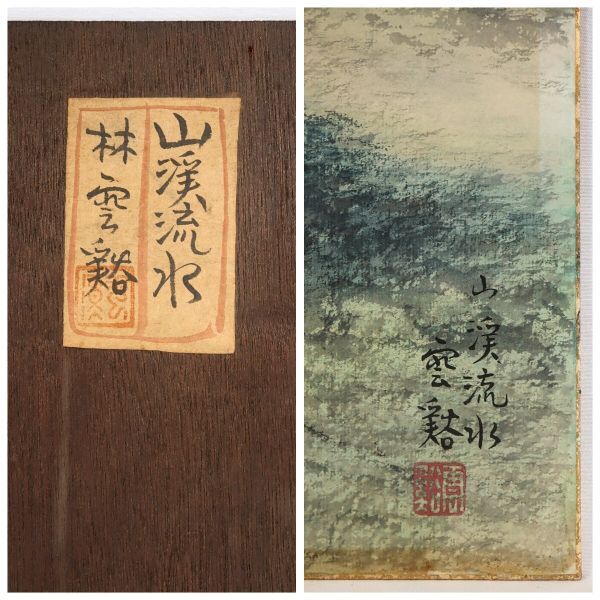 山渓流水
林雲谿
山渓流水
雲谿